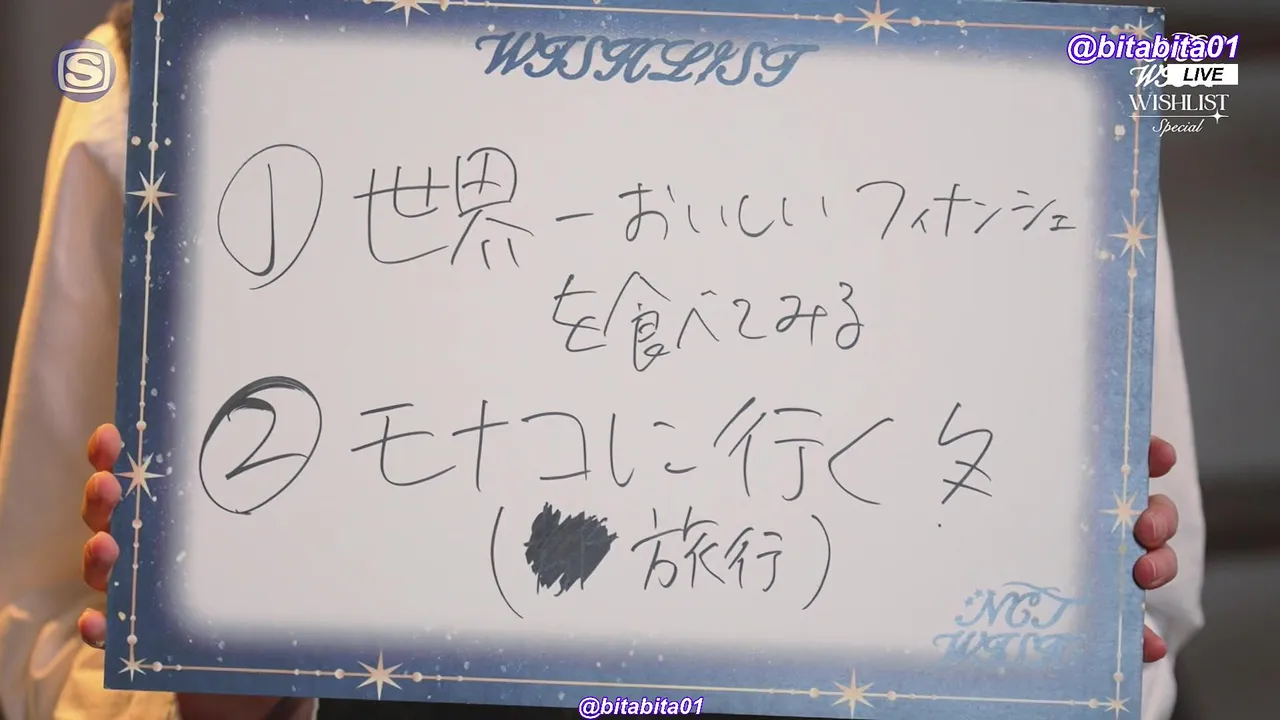 WISHLIST
S
@bitabita01
LIVE
WISHLIST
Special
① 世界一おいしいフィナンシェ
を食べてみる
② モナコに行く
(旅行)
NCT
WISH
@bitabita01